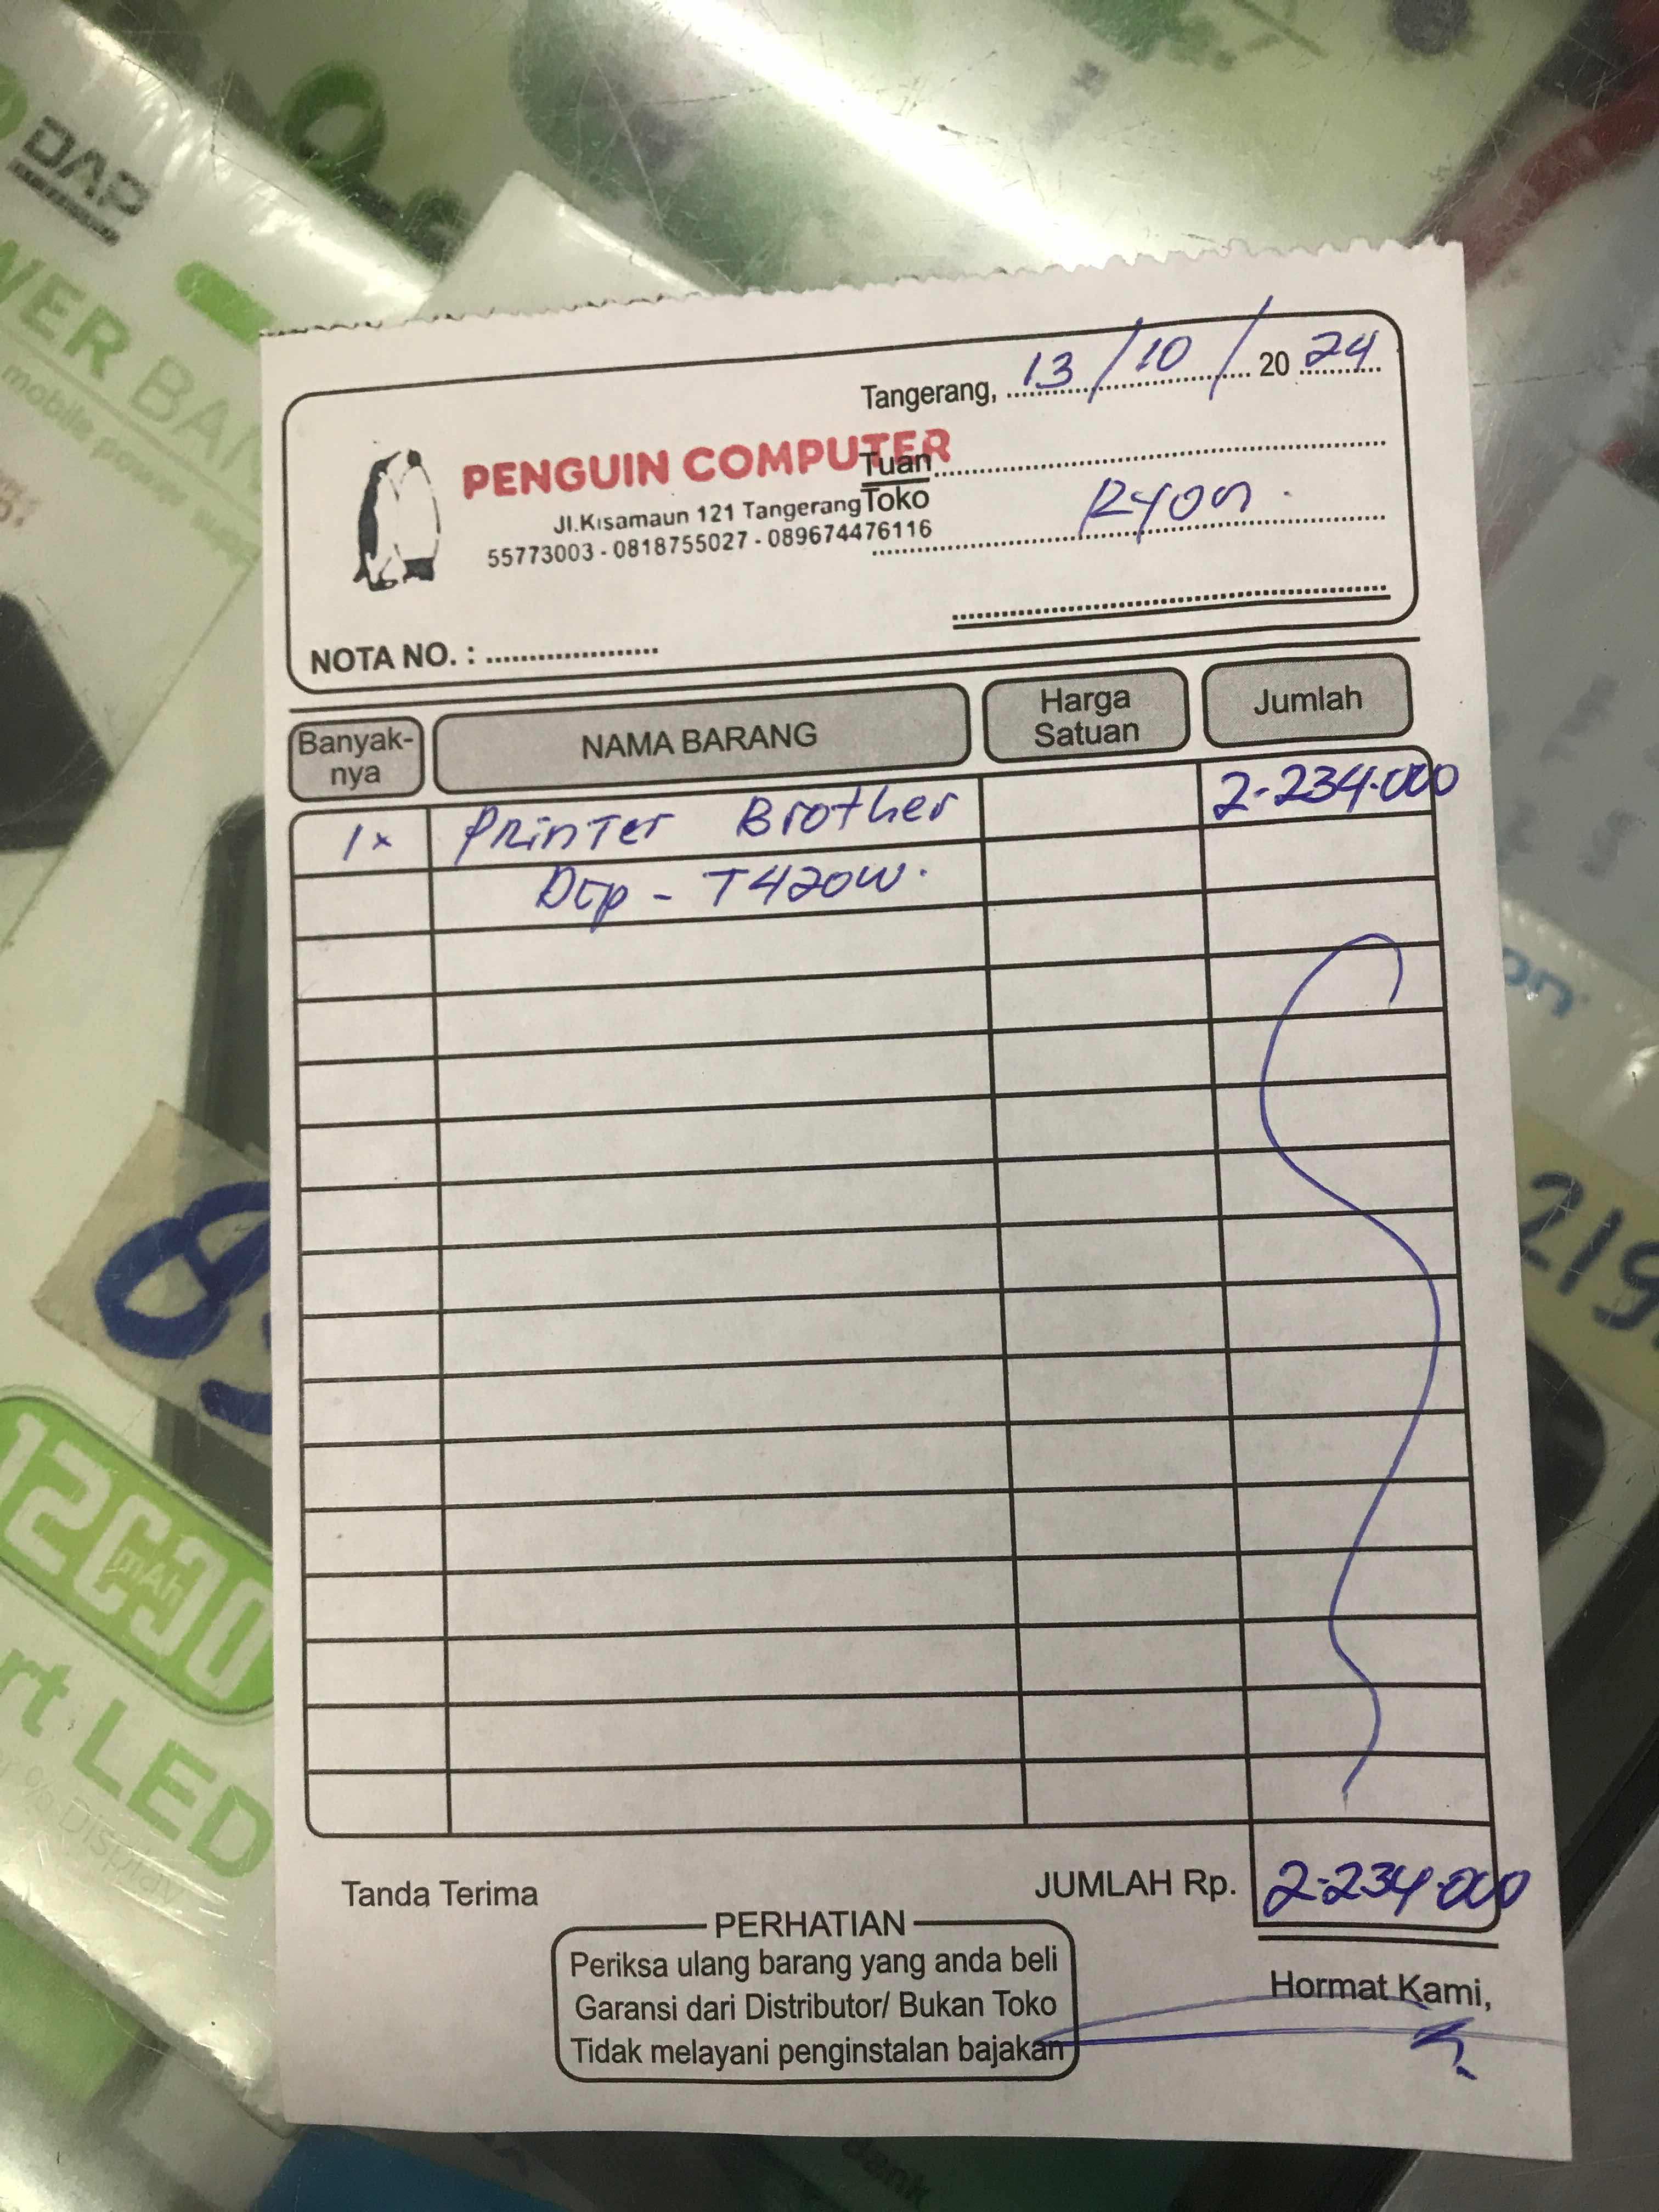 Tangerang, 13 / 10 / 20 24
PENGUIN COMPUTER
Tuan
Jl.Kisamaun 121 Tangerang
Toko
Ryon.
55773003 - 0818755027 - 089674476116
NOTA NO. :
Banyak-
nya
NAMA BARANG
Harga
Satuan
Jumlah
1x Printer Brother 2.234.000
Dcp - T420W.
Tanda Terima
JUMLAH Rp. 2.234.000
PERHATIAN
Periksa ulang barang yang anda beli
Garansi dari Distributor/ Bukan Toko
Tidak melayani penginstalan bajakan
Hormat Kami,
DAP
mobile power
12000
mAh
rt LED
% Display
219